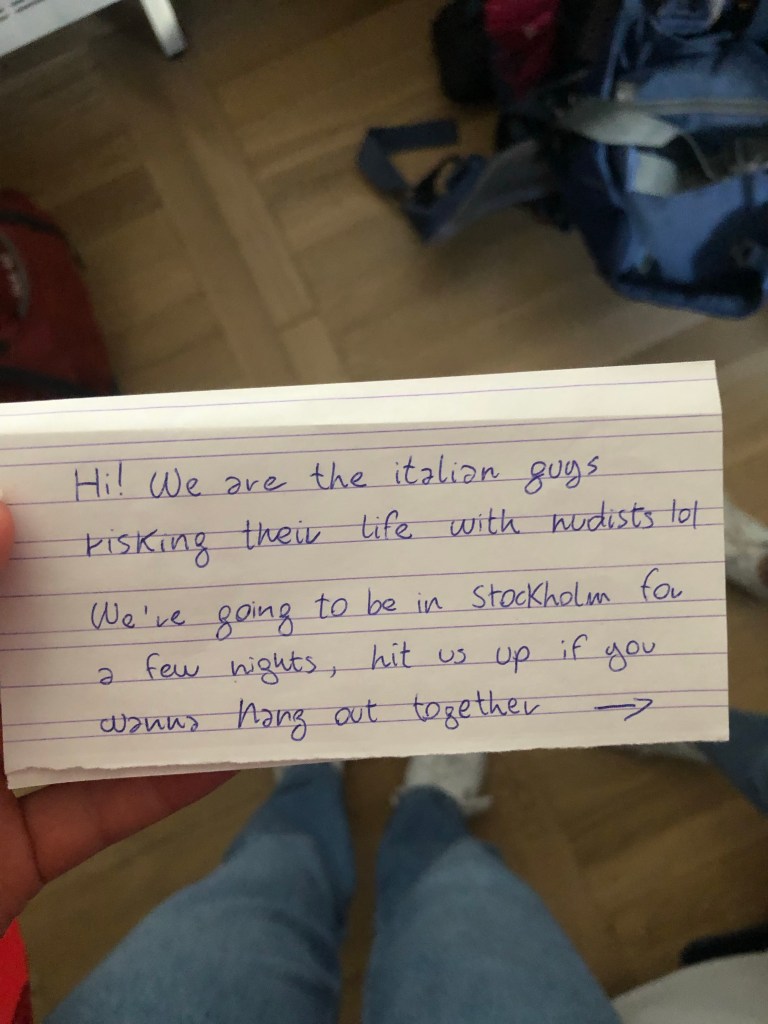 Hi! We are the italian guys
risking their life with nudists lol
We're going to be in Stockholm for
a few nights, hit us up if you
wanna hang out together →